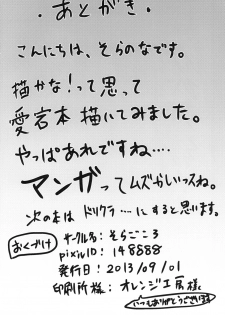 ・あとがき・
こんにちは、そらのなです。
描かな!って思って
愛宕本描いてみました。
やっぱあれですね‥‥
マンガってムズかしいっスね。
次の本は ドリクラ‥‥にすると思います。
おくづけ
サークル名:そらごころ
pixivID:148888
発行日:2013/09/01
印刷所様:オレンジ工房様
いつもありがとうございます